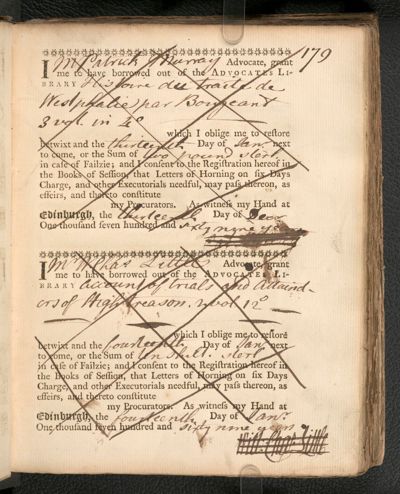 179
I Mr Patrick Murray Advocate, grant
me to have borrowed out of the ADVOCATES LI-
BRARY Histoire du traite de
Westphalie par Bougeant
3 vol. in 4º
which I oblige me to restore
betwixt and the thirteenth Day of Janry next
to come, or the Sum of two pound sterl:
in case of Failzie; and I consent to the Registration hereof in
the Books of Session, that Letters of Horning on six Days
Charge, and other Executorials needful, may pass thereon, as
effeirs, and thereto constitute
my Procurators. As witness my Hand at
Edinburgh, the thirteenth Day of
One thousand seven hundred and sixty nine years
I Mr Advocate, grant
me to have borrowed out of the ADVOCATES LI-
BRARY account of trials and Attaind-
ers of High treason. 2 vol 12º
which I oblige me to restore
betwixt and the fourteenth Day of next
to come, or the Sum of ten shill: sterl:
in case of Failzie; and I consent to the Registration hereof in
the Books of Session, that Letters of Horning on six Days
Charge, and other Executorials needful, may pass thereon, as
effeirs, and thereto constitute
my Procurators. As witness my Hand at
Edinburgh, the fourteenth Day of Janry
One thousand seven hundred and sixty nine years